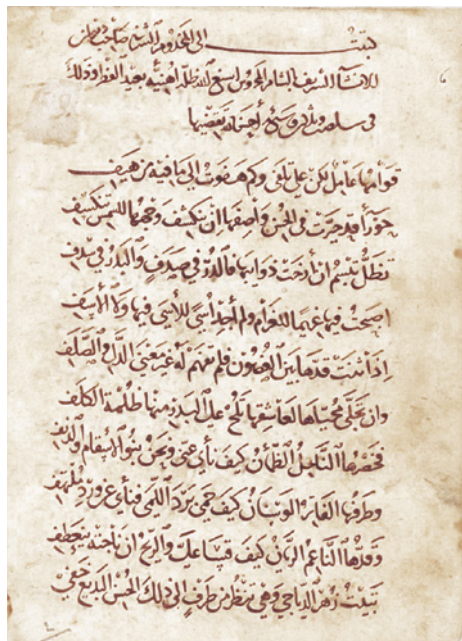 كتبت الى المخدوم السيد صاحب ديوان
الانشاء الشريف بالشام المحروس اسبغ الله ظله اهنيه بعيد الفطر وذلك
في سلخ
قوامها عامل لكن على تلفي وكم هفوت الى ما فيه من هيف
حورآ قد حيرت في الحسن واصفها ان تكشف وجهها للشمس تنكسف
تظل تبسم ان أرخت ذوايبها فالدر في صدف والبدر في سدف
اصبحت فيها غريما للغرام ولم أجد أسى للأسى فيها ولا الأسف
إذا انثنت قدها بين الغصون فلم تفهم له غير معنى الدل والصلف
وان تجلى محياها لعاشقها لاح على البدر منها ظلمة الكلف
فخصرها الناحل الظمآن كيف نأى عني ونحن بنو الاسقام والدنف
وطرفها الفاتر الوسنان كيف حمى برد اللمى فنأى عن ورد ملتهف
وقدها الناعم الريان كيف قسا علي والريح ان ناجته ينعطف
تبيت زهر الدياجي وهي تنظر من طرف الى ذلك الحسن البديع خفي